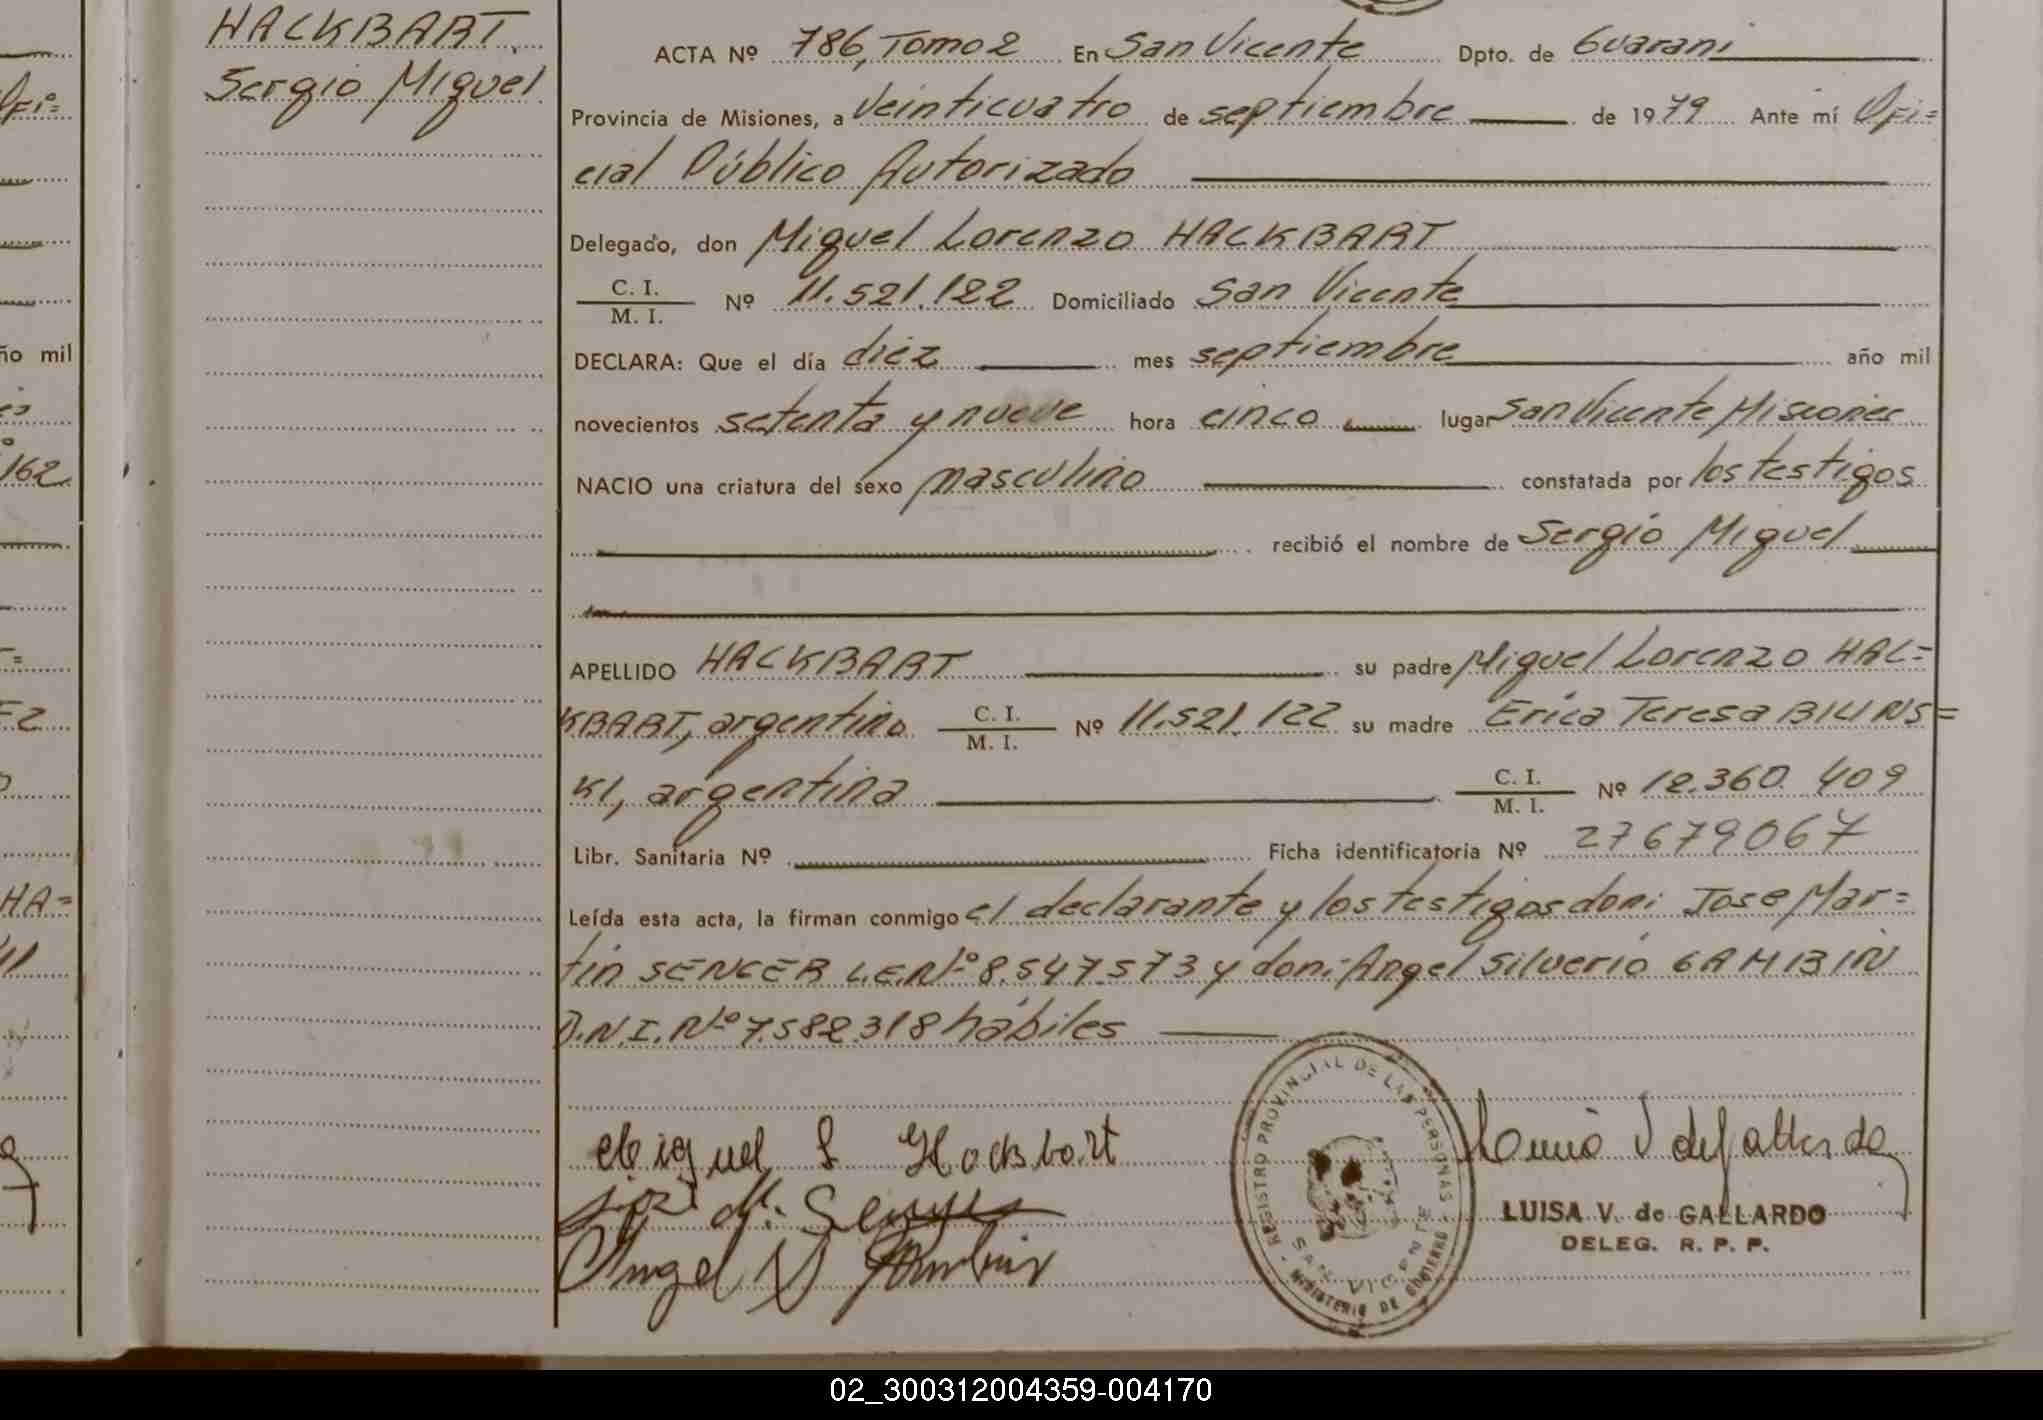 HACKBART
Sergio Miguel
ACTA Nº 786, Tomo 2 En San Vicente Dpto. de Guarani
Provincia de Misiones, a Veinticuatro de septiembre de 1979 Ante mí Ofi=
cial Público Autorizado
Delegado, don Miguel Lorenzo HACKBART
C. I.
M. I. Nº 11.521.122 Domiciliado San Vicente
DECLARA: Que el día diez mes septiembre año mil
novecientos setenta y nueve hora cinco lugar San Vicente Misiones
NACIO una criatura del sexo masculino constatada por los testigos
recibió el nombre de Sergio Miguel
APELLIDO HACKBART su padre Miguel Lorenzo HAC=
KBART, argentino C. I.
M. I. Nº 11.521.122 su madre Erica Teresa BIUNS=
KI, argentina C. I.
M. I. Nº 12.360.409
Libr. Sanitaria Nº Ficha identificatoria Nº 27679067
Leída esta acta, la firman conmigo el declarante y los testigos don: Jose Mar=
tin SENGER L.E.Nº 8.547.573 y don: Angel Silverio GAMBIN
D.N.I. Nº 7.582.318 hábiles
Miguel L Hackbart
José M. Senger
Angel S Gambin
REGISTRO PROVINCIAL DE LAS PERSONAS
SAN VICENTE
MINISTERIO DE GOBIERNO
Luisa V de Gallardo
LUISA V. de GALLARDO
DELEG. R. P. P.
ño mil
162
HA=
02_300312004359-004170